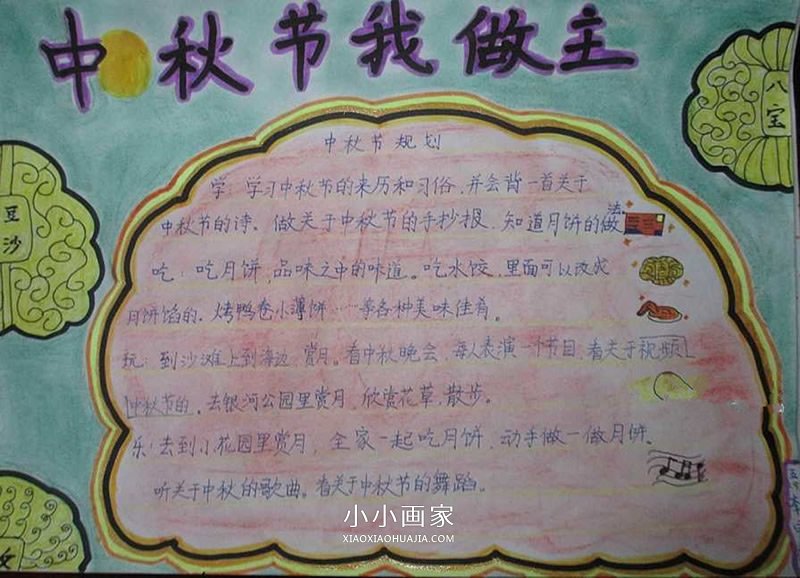 中秋节我做主
八宝
豆沙
中秋节规划
学：学习中秋节的来历和习俗，并会背一首关于
中秋节的诗、做关于中秋节的手抄报、知道月饼的做法。
吃：吃月饼，品味之中的味道。吃水饺，里面可以改成
月饼馅的，烤鸭卷小薄饼……等各种美味佳肴。
玩：到沙滩上到海边，赏月。看中秋晚会，每人表演一个节目，看关于视频
中秋节的。去银河公园里赏月，欣赏花草，散步。
乐：去到小花园里赏月，全家一起吃月饼，动手做一做月饼、
听关于中秋的歌曲。看关于中秋节的舞蹈。
小小画家
XIAOXIAOHUAJIA.COM